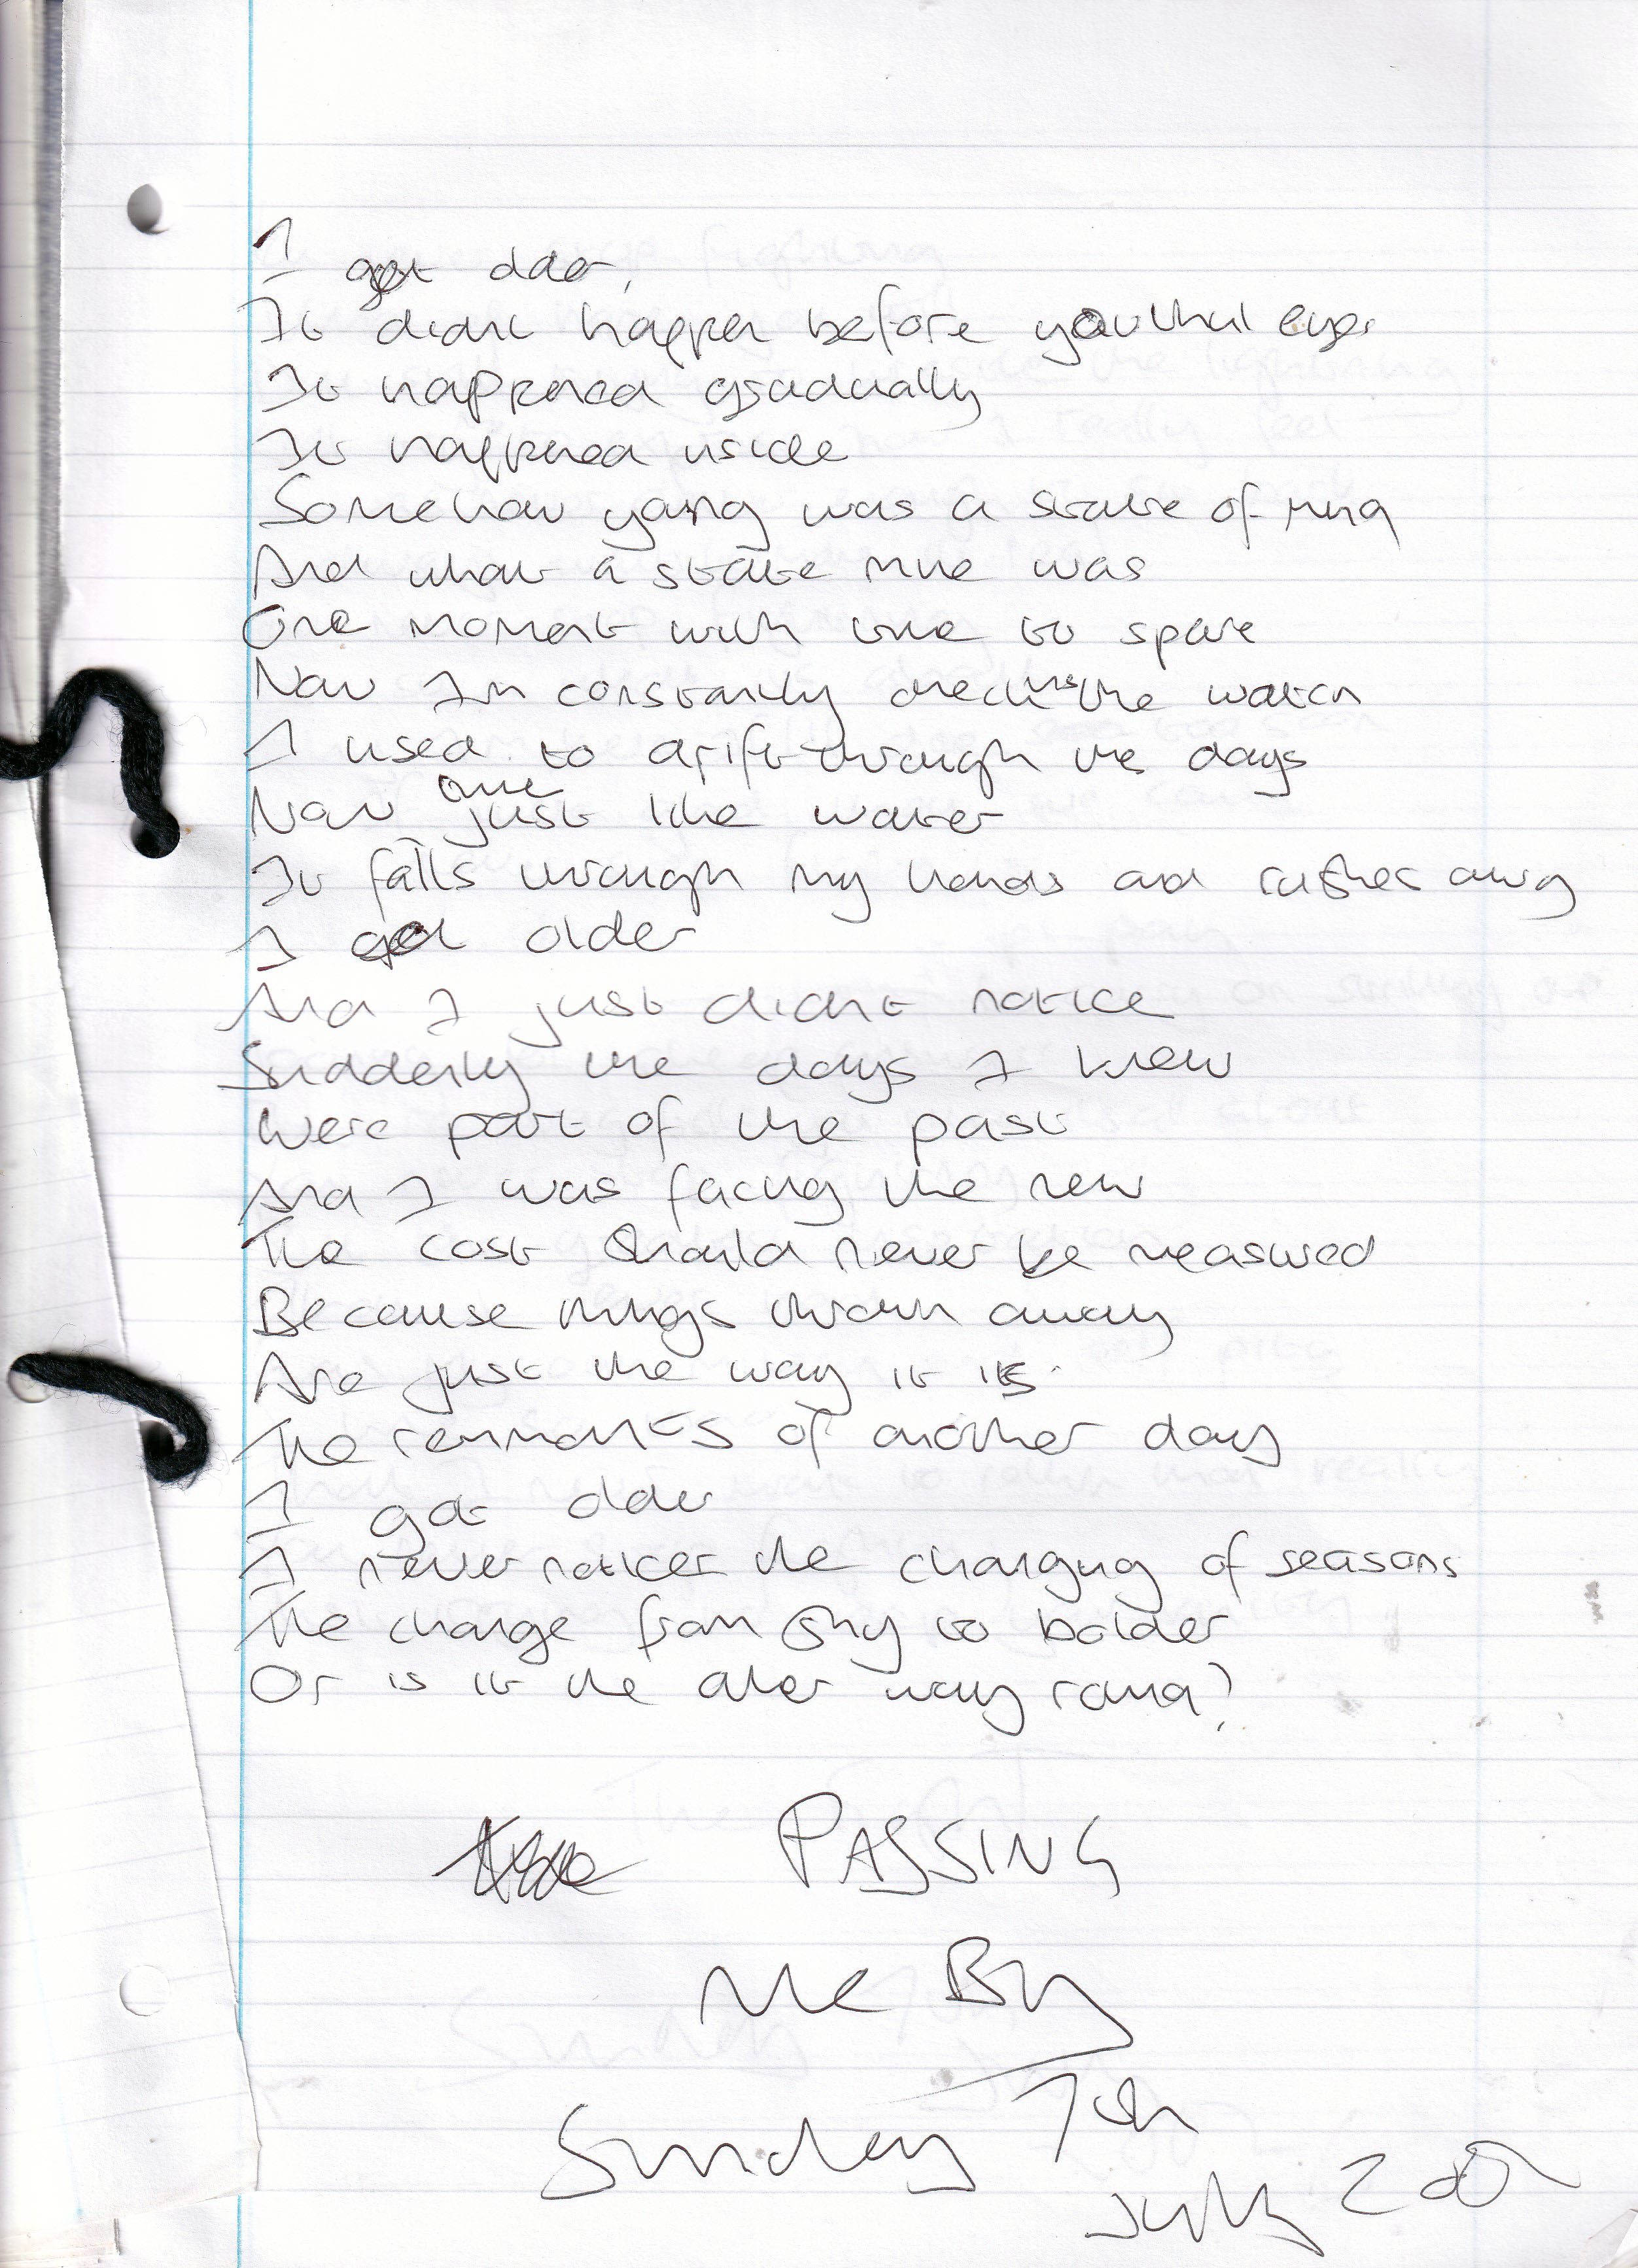 I got older,
It didnt happen before youthful eyes
It happened gradually
It happened inside
Somehow young was a state of mind
And what a state mine was
One moment with time to spare
Now Im constantly checking the watch
I used to drift through the days
Now time just like water
It falls through my hands and rushes away
I got older
And I just didnt notice
Suddenly the days I knew
Were part of the past
And I was facing the new
The cost should never be measured
Because things thrown away
Are just the way it is.
The remnants of another day
I got older
I never notice the changing of seasons
The change from shy to bolder
Or is it the other way round?
PASSING
Me By
Sunday 7th
July 200